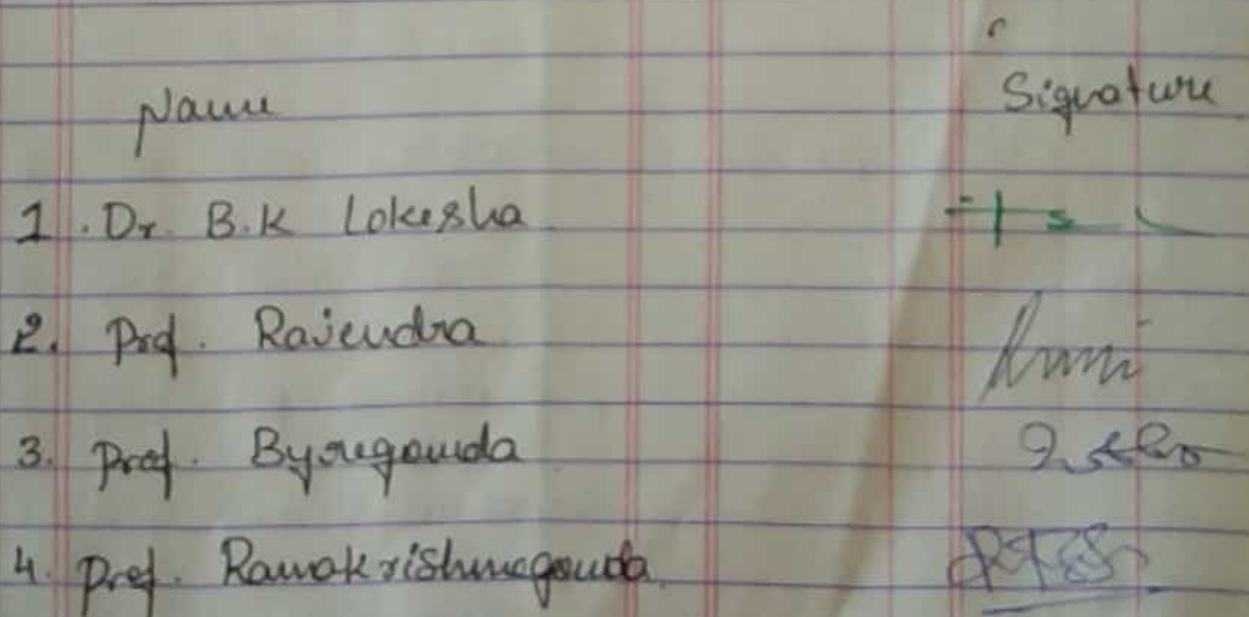 Name Signature
1. Dr. B.K Lokesha
2. Prof. Rajendra
3. Prof. Byregowda
4. Prof. Ramakrishnegowda